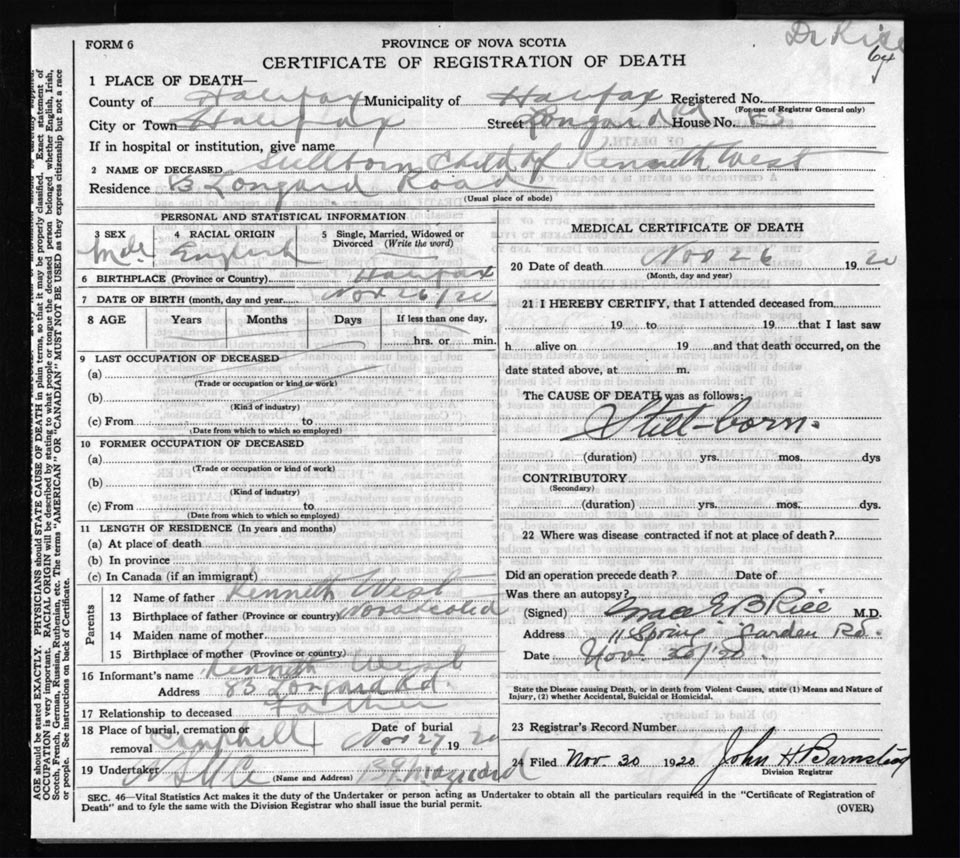 Dr Rice
64
FORM 6
PROVINCE OF NOVA SCOTIA
CERTIFICATE OF REGISTRATION OF DEATH
1 PLACE OF DEATH—
County of Halifax Municipality of Halifax Registered No.
(For use of Registrar General only)
City or Town Halifax Street Longard Rd House No.
If in hospital or institution, give name
2 NAME OF DECEASED Stillborn Child of Kenneth West
Residence 83 Longard Road
(Usual place of abode)
PERSONAL AND STATISTICAL INFORMATION
3 SEX 4 RACIAL ORIGIN 5 Single, Married, Widowed or Divorced (Write the word)
Male English
6 BIRTHPLACE (Province or Country) Halifax
7 DATE OF BIRTH (month, day and year) Nov 26/20
8 AGE Years Months Days If less than one day,
hrs. or min.
9 LAST OCCUPATION OF DECEASED
(a)
(Trade or occupation or kind or work)
(b)
(Kind of industry)
(c) From to
(Date from which to which so employed)
10 FORMER OCCUPATION OF DECEASED
(a)
(Trade or occupation or kind of work)
(b)
(Kind of industry)
(c) From to
(Date from which to which so employed)
11 LENGTH OF RESIDENCE (In years and months)
(a) At place of death
(b) In province
(c) In Canada (if an immigrant)
Parents
12 Name of father Kenneth West
13 Birthplace of father (Province or country) Nova Scotia
14 Maiden name of mother
15 Birthplace of mother (Province or country)
16 Informant's name Kenneth West
Address 83 Longard Rd.
17 Relationship to deceased Father
18 Place of burial, cremation or Date of burial
removal Camphill Nov 27 1920
19 Undertaker N S U Co
(Name and Address)
MEDICAL CERTIFICATE OF DEATH
20 Date of death Nov 26 1920
(Month, day and year)
21 I HEREBY CERTIFY, that I attended deceased from
19 to 19 that I last saw
h alive on 19 and that death occurred, on the
date stated above, at m.
The CAUSE OF DEATH was as follows:
Still-born.
(duration) yrs. mos. dys
CONTRIBUTORY
(Secondary)
(duration) yrs. mos. dys.
22 Where was disease contracted if not at place of death?
Did an operation precede death? Date of
Was there an autopsy?
(Signed) Grace E B Rice M.D.
Address 11 Spring Garden Rd.
Date Nov. 30/'20.
State the Disease causing Death, or in death from Violent Causes, state (1) Means and Nature of
Injury, (2) whether Accidental, Suicidal or Homicidal.
23 Registrar's Record Number
24 Filed Nov 30 1920 John H Barnstead
Division Registrar
SEC. 46—Vital Statistics Act makes it the duty of the Undertaker or person acting as Undertaker to obtain all the particulars required in the "Certificate of Registration of
Death" and to fyle the same with the Division Registrar who shall issue the burial permit.
(OVER)
AGE should be stated EXACTLY. PHYSICIANS should STATE CAUSE OF DEATH in plain terms, so that it may be properly classified. Exact statement of
OCCUPATION is very important. RACIAL ORIGIN will be described by stating to what people or tongue the deceased person belonged whether English, Irish,
Scotch, French, German, Russian, Ruthenian, etc. The terms "AMERICAN" OR "CANADIAN" MUST NOT BE USED as they express citizenship but not a race
or people. See instructions on back of Certificate.